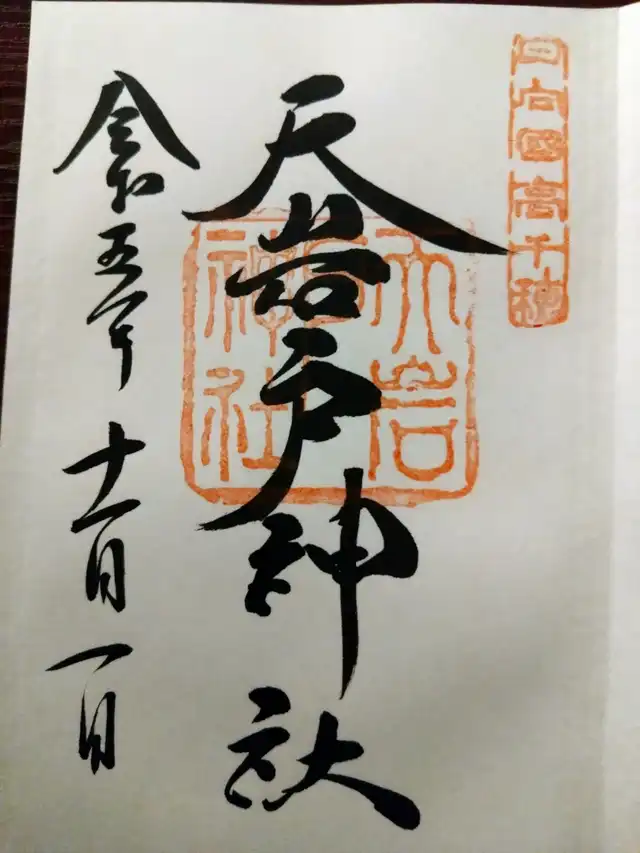 日向國高千穂
天岩戸神社
天岩
神社
令和五年十一月一日